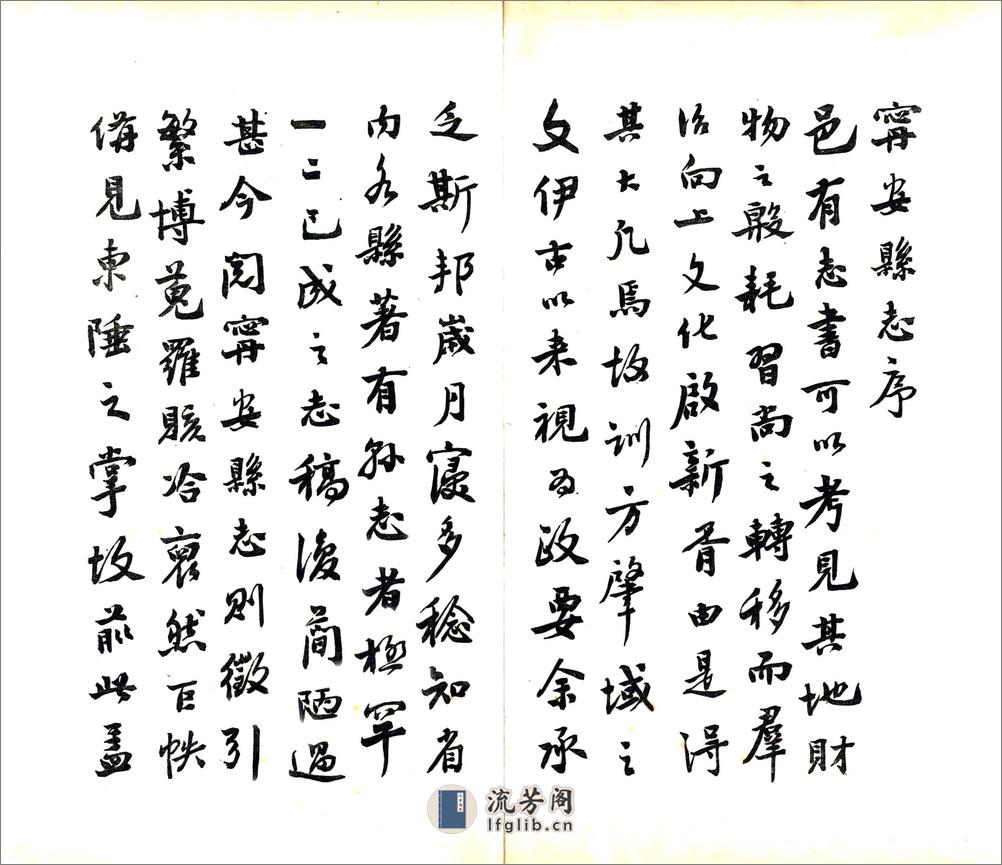 寧安縣志序
邑有志書可以考見其地財
物之殷耗習尚之轉移而羣
治向上文化啟新胥由是得
其大凡焉故訓方肇域之
文伊古以來視為政要余承
乏斯邦歲月寖多稔知省
内各縣著有縣志者極罕
一二已成之志稿復簡陋過
甚今閱寧安縣志則徵引
繁博蒐羅賅洽裒然巨帙
備見東陲之掌故前此蓋
流芳阁
lfglib.cn